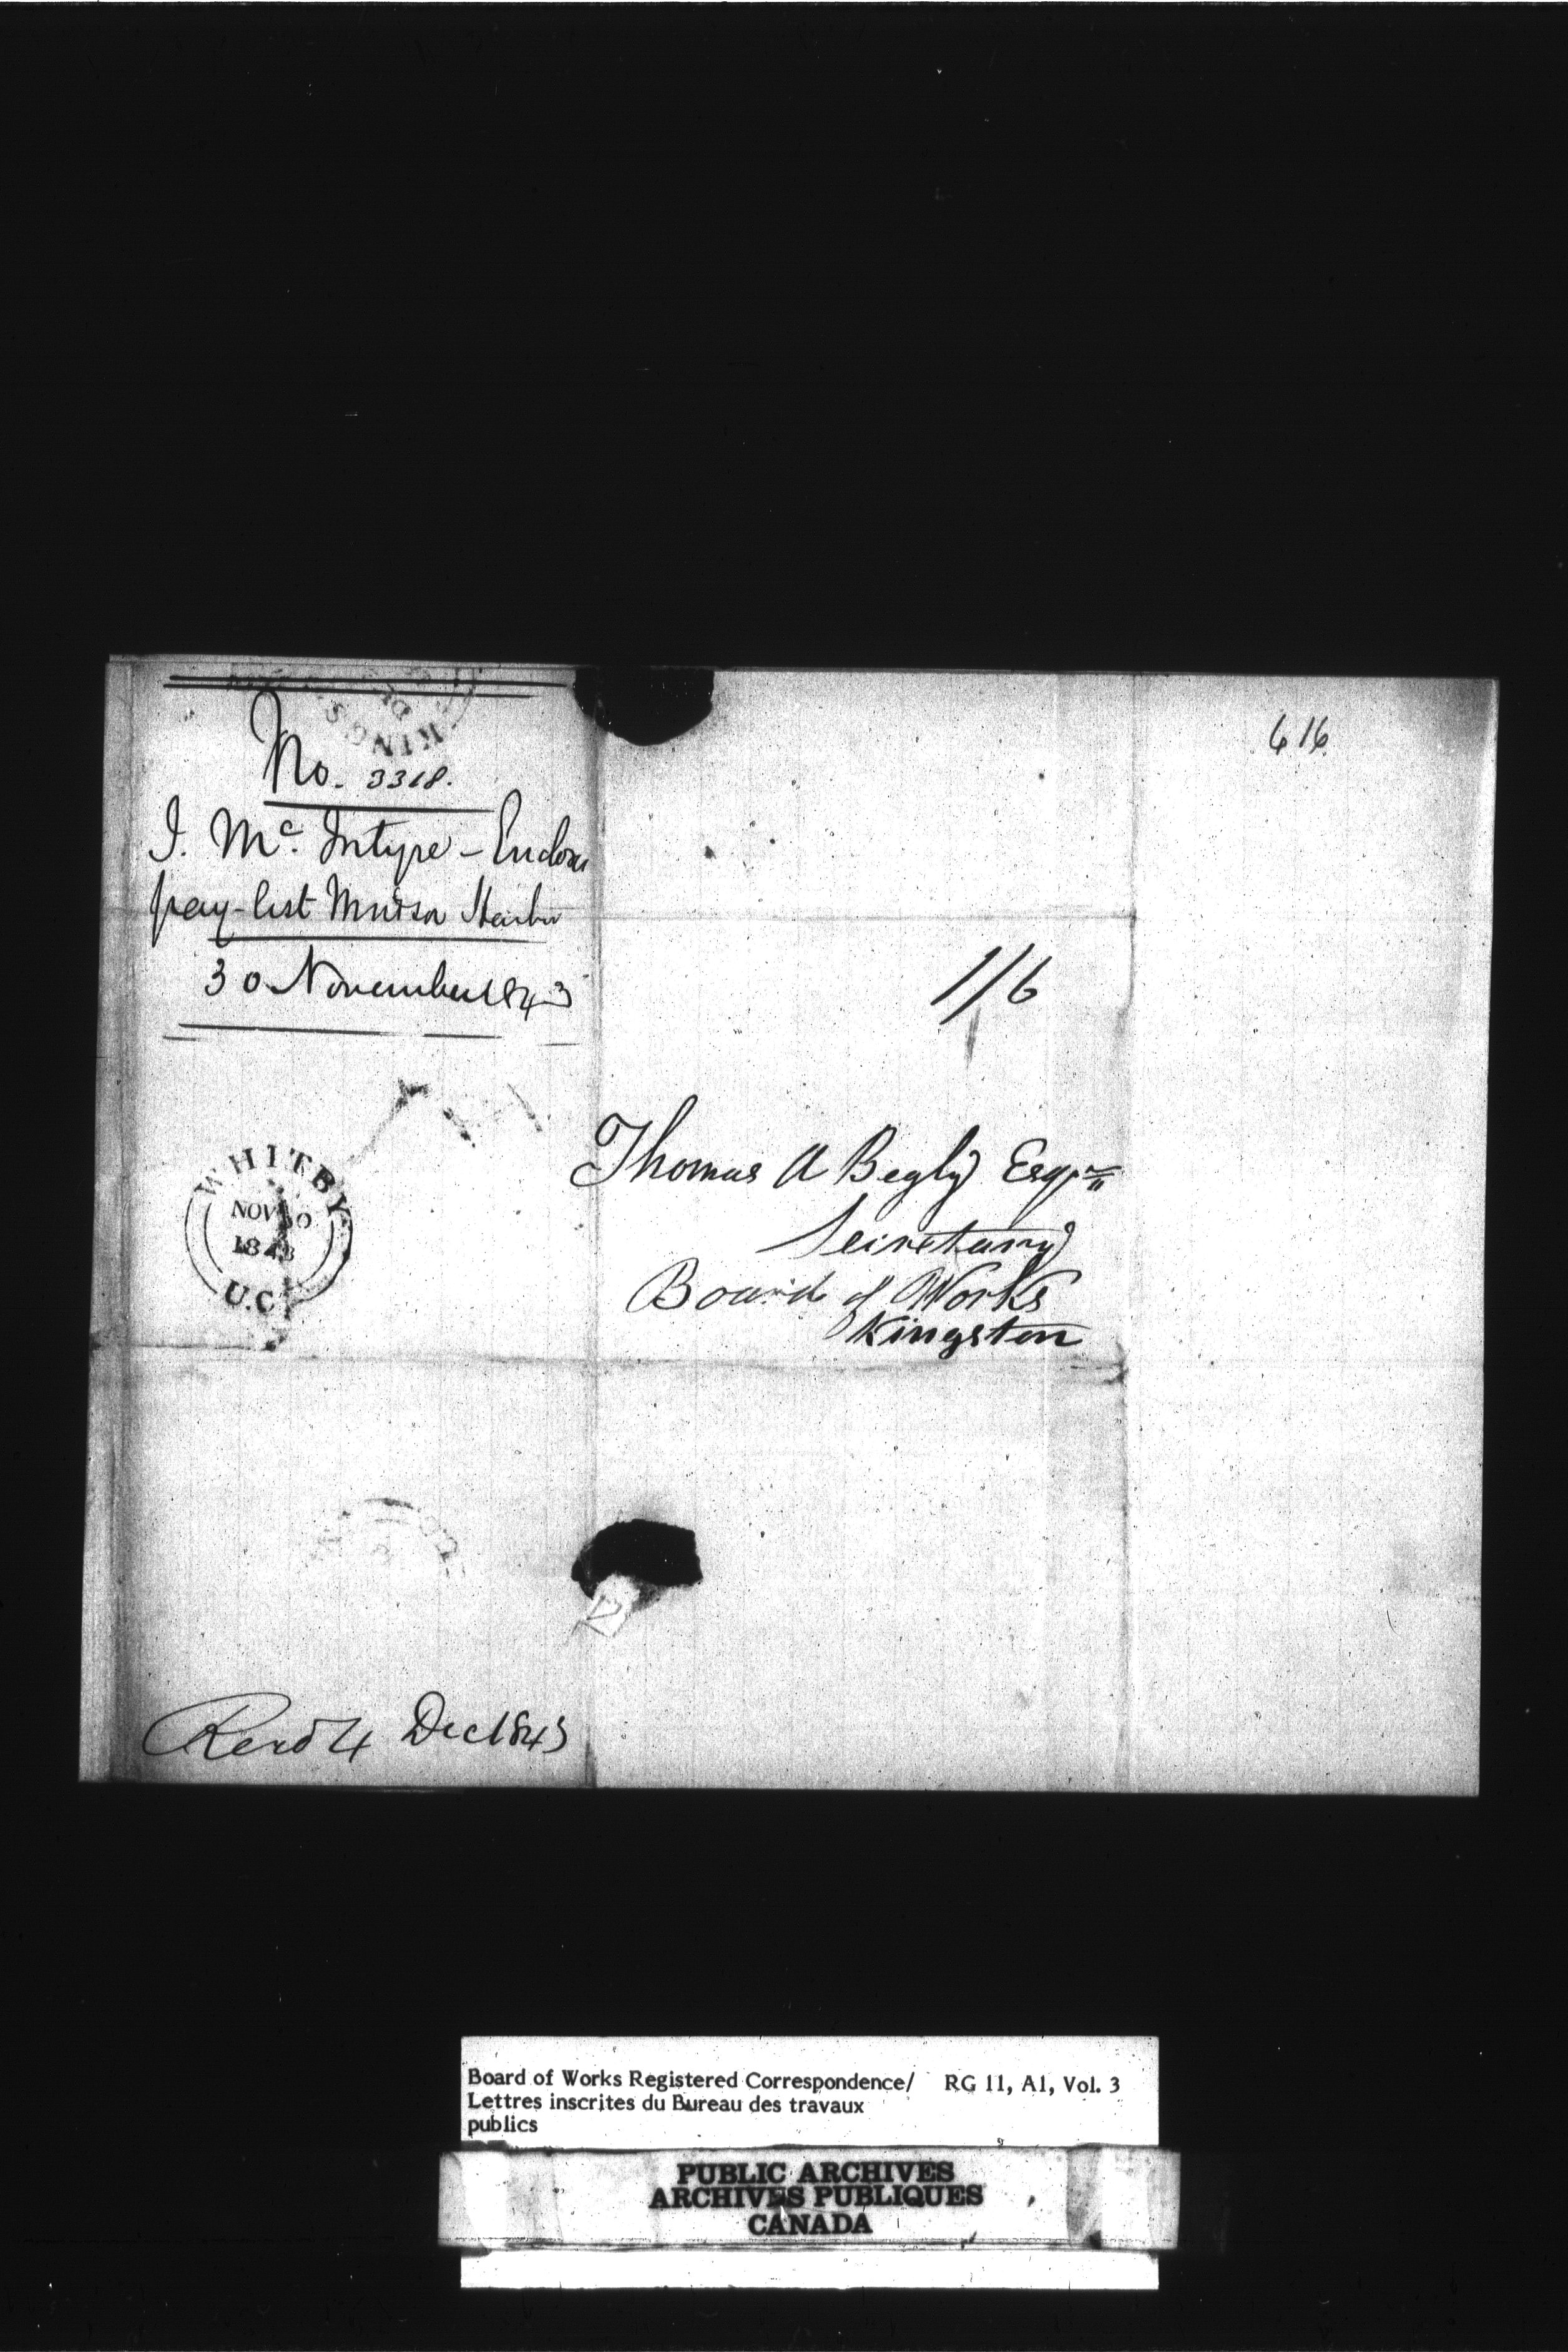 KINGS
No. 3318.
J. Mc. Intyre - Enclose
pay-list Windsor Harbor
30 November 1843
616
1/6
WHITBY
NOV 30
1843
U.C.
Thomas A Begly Esqr
Secretary
Board of Works
Kingston
Recd 4 Dec 1843
Board of Works Registered Correspondence/ RG 11, A1, Vol. 3
Lettres inscrites du Bureau des travaux
publics
PUBLIC ARCHIVES
ARCHIVES PUBLIQUES
CANADA